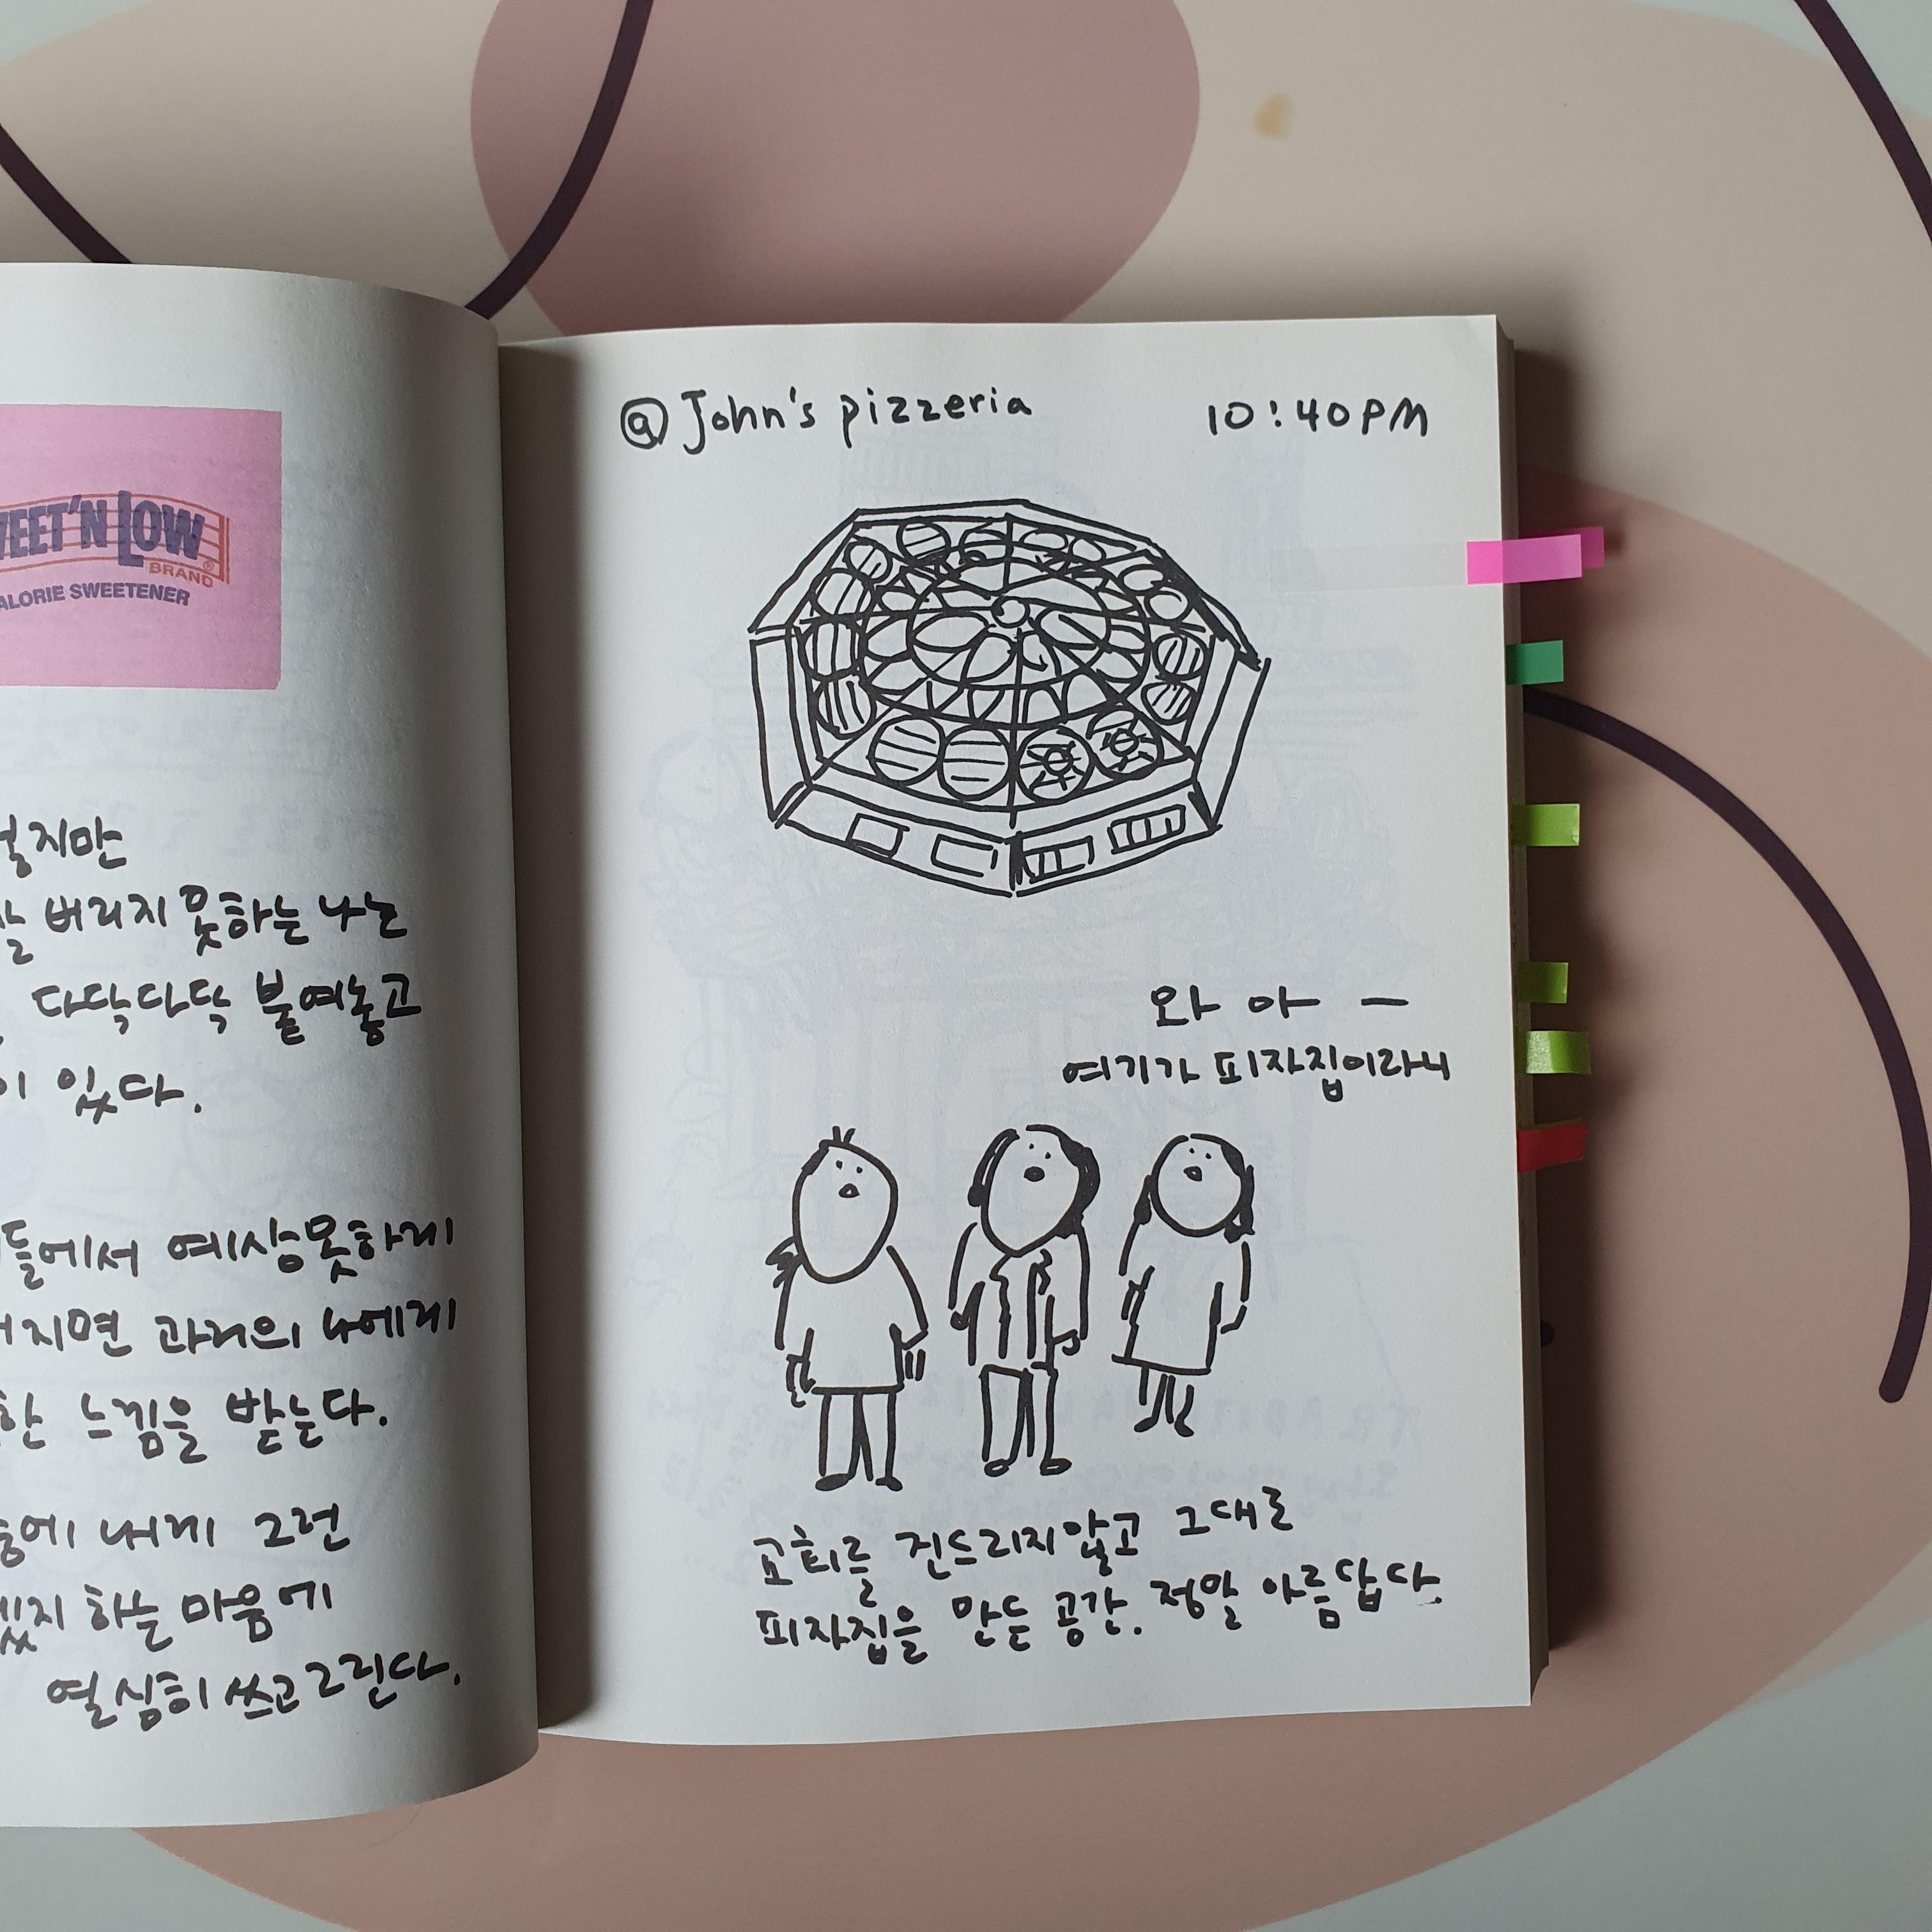 SWEET'N LOW
BRAND
CALORIE SWEETENER
버리지 못하는 나는
다닥다닥 붙여놓고
있다.
들에서 예상못하게
과거의 나에게
느낌을 받는다.
내게 그런
하는 마음에
열심히 쓰고 그린다.
@ John's pizzeria 10:40PM
와 아 —
여기가 피자집이라니
교회를 건드리지않고 그대로
피자집을 만든 공간. 정말 아름답다.